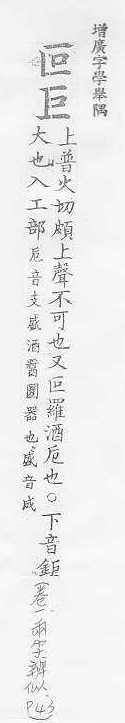 增廣字學舉隅
叵巨
上普火切頗上聲不可也又叵羅酒卮也。下音鉅
大也入工部卮音支盛酒醬圓器也盛音成
(卷一兩字辨似、P43)